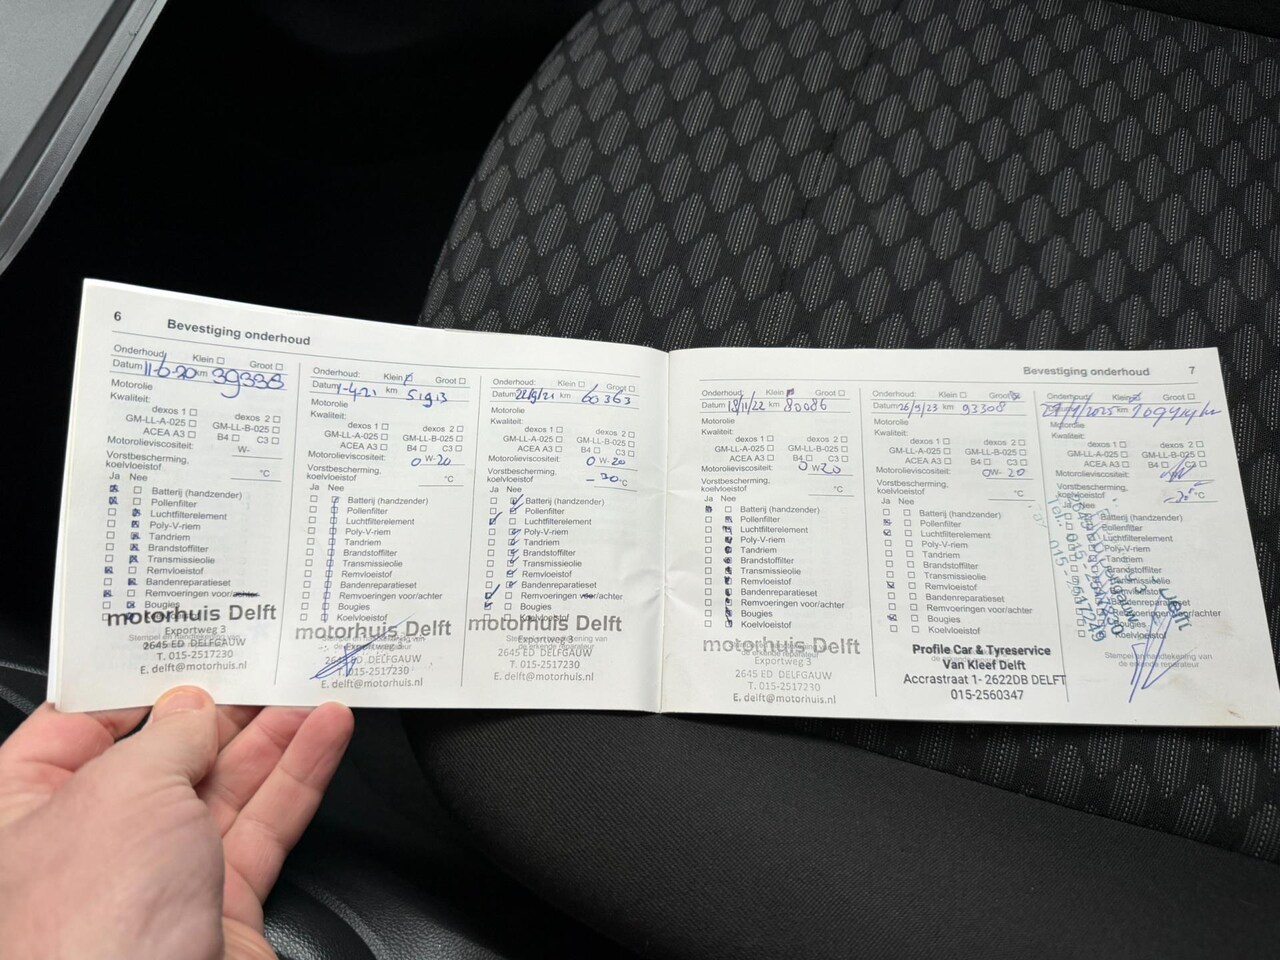 6
Bevestiging onderhoud
Onderhoud: Klein Groot
Datum 11-6-20 km 39338
Motorolie
Kwaliteit:
dexos 1 dexos 2
GM-LL-A-025 GM-LL-B-025
ACEA A3 B4 C3
Motorolieviscositeit:
W-
Vorstbescherming,
koelvloeistof °C
Ja Nee
Batterij (handzender)
Pollenfilter
Luchtfilterelement
Poly-V-riem
Tandriem
Brandstoffilter
Transmissieolie
Remvloeistof
Bandenreparatieset
Remvoeringen voor/achter
Bougies
motorhuis Delft
Exportweg 3
2645 ED DELFGAUW
T. 015-2517230
E. delft@motorhuis.nl
Onderhoud: Klein Groot
Datum 1-4-21 km 51913
Motorolie
Kwaliteit:
dexos 1 dexos 2
GM-LL-A-025 GM-LL-B-025
ACEA A3 B4 C3
Motorolieviscositeit:
0 W-20
Vorstbescherming,
koelvloeistof °C
Ja Nee
Batterij (handzender)
Pollenfilter
Luchtfilterelement
Poly-V-riem
Tandriem
Brandstoffilter
Transmissieolie
Remvloeistof
Bandenreparatieset
Remvoeringen voor/achter
Bougies
Koelvloeistof
motorhuis Delft
Exportweg 3
2645 ED DELFGAUW
T. 015-2517230
E. delft@motorhuis.nl
Onderhoud: Klein Groot
Datum 22/9/21 km 60363
Motorolie
Kwaliteit:
dexos 1 dexos 2
GM-LL-A-025 GM-LL-B-025
ACEA A3 B4 C3
Motorolieviscositeit:
0 W-20
Vorstbescherming,
koelvloeistof -30 °C
Ja Nee
Batterij (handzender)
Pollenfilter
Luchtfilterelement
Poly-V-riem
Tandriem
Brandstoffilter
Transmissieolie
Remvloeistof
Bandenreparatieset
Remvoeringen voor/achter
Bougies
Koelvloeistof
motorhuis Delft
Exportweg 3
2645 ED DELFGAUW
T. 015-2517230
E. delft@motorhuis.nl
Bevestiging onderhoud
7
Onderhoud: Klein Groot
Datum 18/11/22 km 80086
Motorolie
Kwaliteit:
dexos 1 dexos 2
GM-LL-A-025 GM-LL-B-025
ACEA A3 B4 C3
Motorolieviscositeit:
0 W 20
Vorstbescherming,
koelvloeistof °C
Ja Nee
Batterij (handzender)
Pollenfilter
Luchtfilterelement
Poly-V-riem
Tandriem
Brandstoffilter
Transmissieolie
Remvloeistof
Bandenreparatieset
Remvoeringen voor/achter
Bougies
Koelvloeistof
motorhuis Delft
Exportweg 3
2645 ED DELFGAUW
T. 015-2517230
E. delft@motorhuis.nl
Onderhoud: Klein Groot
Datum 26/9/23 km 93308
Motorolie
Kwaliteit:
dexos 1 dexos 2
GM-LL-A-025 GM-LL-B-025
ACEA A3 B4 C3
Motorolieviscositeit:
0W- 20
Vorstbescherming,
koelvloeistof °C
Ja Nee
Batterij (handzender)
Pollenfilter
Luchtfilterelement
Poly-V-riem
Tandriem
Brandstoffilter
Transmissieolie
Remvloeistof
Bandenreparatieset
Remvoeringen voor/achter
Bougies
Koelvloeistof
Profile Car & Tyreservice
Van Kleef Delft
Accrastraat 1- 2622DB DELFT
015-2560347
Onderhoud: Klein Groot
km
Motorolie
Kwaliteit:
dexos 1 dexos 2
GM-LL-A-025 GM-LL-B-025
ACEA A3 B4 C3
Motorolieviscositeit:
Vorstbescherming,
koelvloeistof °C
Ja Nee
Batterij (handzender)
Pollenfilter
Luchtfilterelement
Poly-V-riem
Tandriem
Brandstoffilter
Transmissieolie
Remvloeistof
Bandenreparatieset
Remvoeringen voor/achter
Bougies
Koelvloeistof
Stempel en handtekening van
de erkende reparateur
Delft